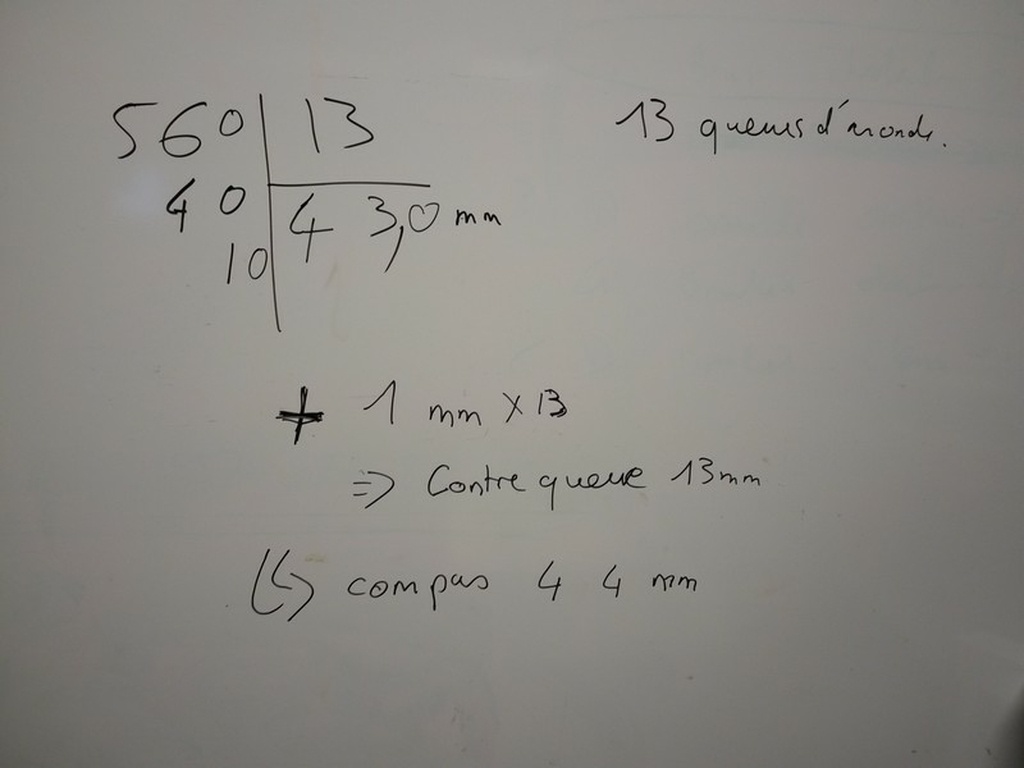 560 13
13 queues d'aronde.
40 43,0 mm
10
+ 1 mm x 13
=> Contre queue 13mm
↳ compas 44 mm